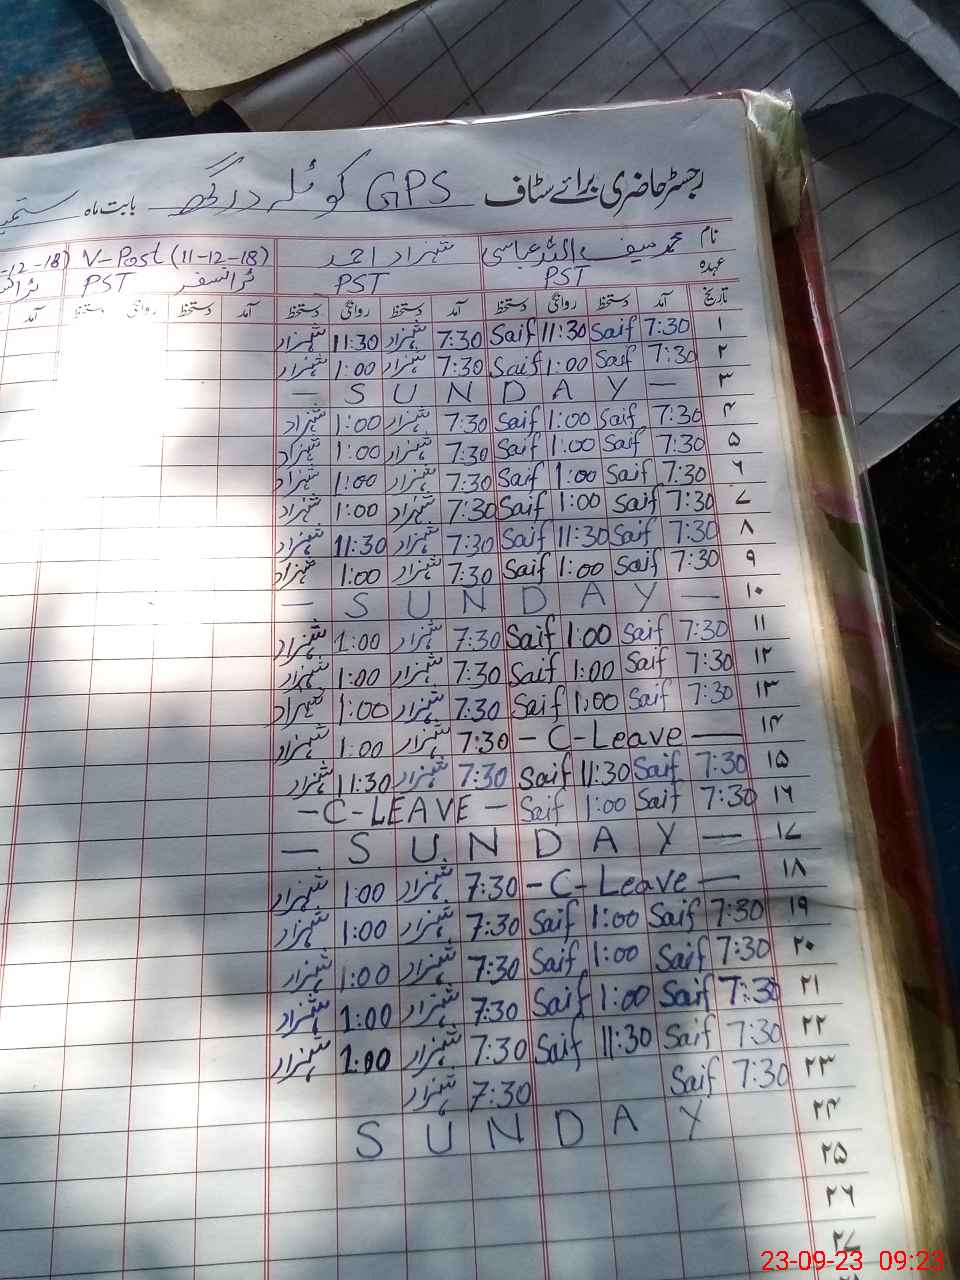 رجسٹر حاضری برائے سٹاف GPS کوئلہ درگھ بابت ماہ ستمبر
نام محمد سیف اللہ عباسی شہزاد احمد V-Post (11-12-18) -12-18)
عہدہ PST PST ٹرانسفر PST
تاریخ آمد دستخط روانگی دستخط آمد دستخط روانگی دستخط آمد دستخط روانگی دستخط آمد
۱ 7:30 Saif 11:30 Saif 7:30 شہزاد 11:30 شہزاد
۲ 7:30 Saif 1:00 Saif 7:30 شہزاد 1:00 شہزاد
۳ — SUNDAY —
۴ 7:30 Saif 1:00 Saif 7:30 شہزاد 1:00 شہزاد
۵ 7:30 Saif 1:00 Saif 7:30 شہزاد 1:00 شہزاد
۶ 7:30 Saif 1:00 Saif 7:30 شہزاد 1:00 شہزاد
۷ 7:30 Saif 1:00 Saif 7:30 شہزاد 1:00 شہزاد
۸ 7:30 Saif 11:30 Saif 7:30 شہزاد 11:30 شہزاد
۹ 7:30 Saif 1:00 Saif 7:30 شہزاد 1:00 شہزاد
۱۰ — SUNDAY —
۱۱ 7:30 Saif 1:00 Saif 7:30 شہزاد 1:00 شہزاد
۱۲ 7:30 Saif 1:00 Saif 7:30 شہزاد 1:00 شہزاد
۱۳ 7:30 Saif 1:00 Saif 7:30 شہزاد 1:00 شہزاد
۱۴ — C-Leave — 7:30 شہزاد 1:00 شہزاد
۱۵ 7:30 Saif 11:30 Saif 7:30 شہزاد 11:30 شہزاد
۱۶ 7:30 Saif 1:00 Saif — C-LEAVE —
۱۷ — SUNDAY —
۱۸ — C-Leave — 7:30 شہزاد 1:00 شہزاد
۱۹ 7:30 Saif 1:00 Saif 7:30 شہزاد 1:00 شہزاد
۲۰ 7:30 Saif 1:00 Saif 7:30 شہزاد 1:00 شہزاد
۲۱ 7:30 Saif 1:00 Saif 7:30 شہزاد 1:00 شہزاد
۲۲ 7:30 Saif 11:30 Saif 7:30 شہزاد 1:00 شہزاد
۲۳ 7:30 Saif 7:30 شہزاد
۲۴ SUNDAY
۲۵
۲۶
۲۷
23-09-23 09:23